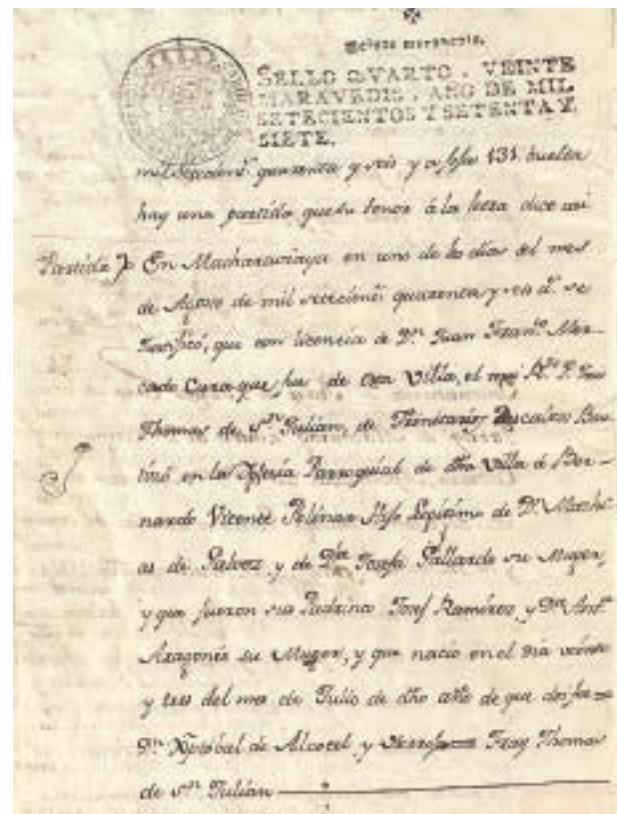 SELLO QVARTO, VEINTE
MARAVEDIS, AÑO DE MIL
SETECIENTOS Y SETENTA Y
SIETE.
quarenta y seis y a 131. buelta
hay una partida que su tenor á la letra dice asi
Partida En Macharaviaya en uno de los dias del mes
de Agosto de mil setecient.s quarenta y seis a.s se
que con licencia de D.n Juan Fran.co Mer-
cado Cura que fue de esta Villa, el R.do P. Fray
Thomas de S.n Julian, de Trinitarios Descalzos Bau-
tizó en la Yglesia Parroquial de dha Villa á Ber-
nardo Vicente Polinar Hijo Lexitimo de D.n Mathi-
as de Galvez y de D.ña Josefa Gallardo su Muger,
y que fueron sus Padrinos Josef Ramirez, y D.ña Ant.a
Aragonés su Muger, y que nació en el dia veinte
y tres del mes de Julio de dho año de que doi fee =
D.n Xptobal de Alcocel y = Fray Thomas
de S.n Julian